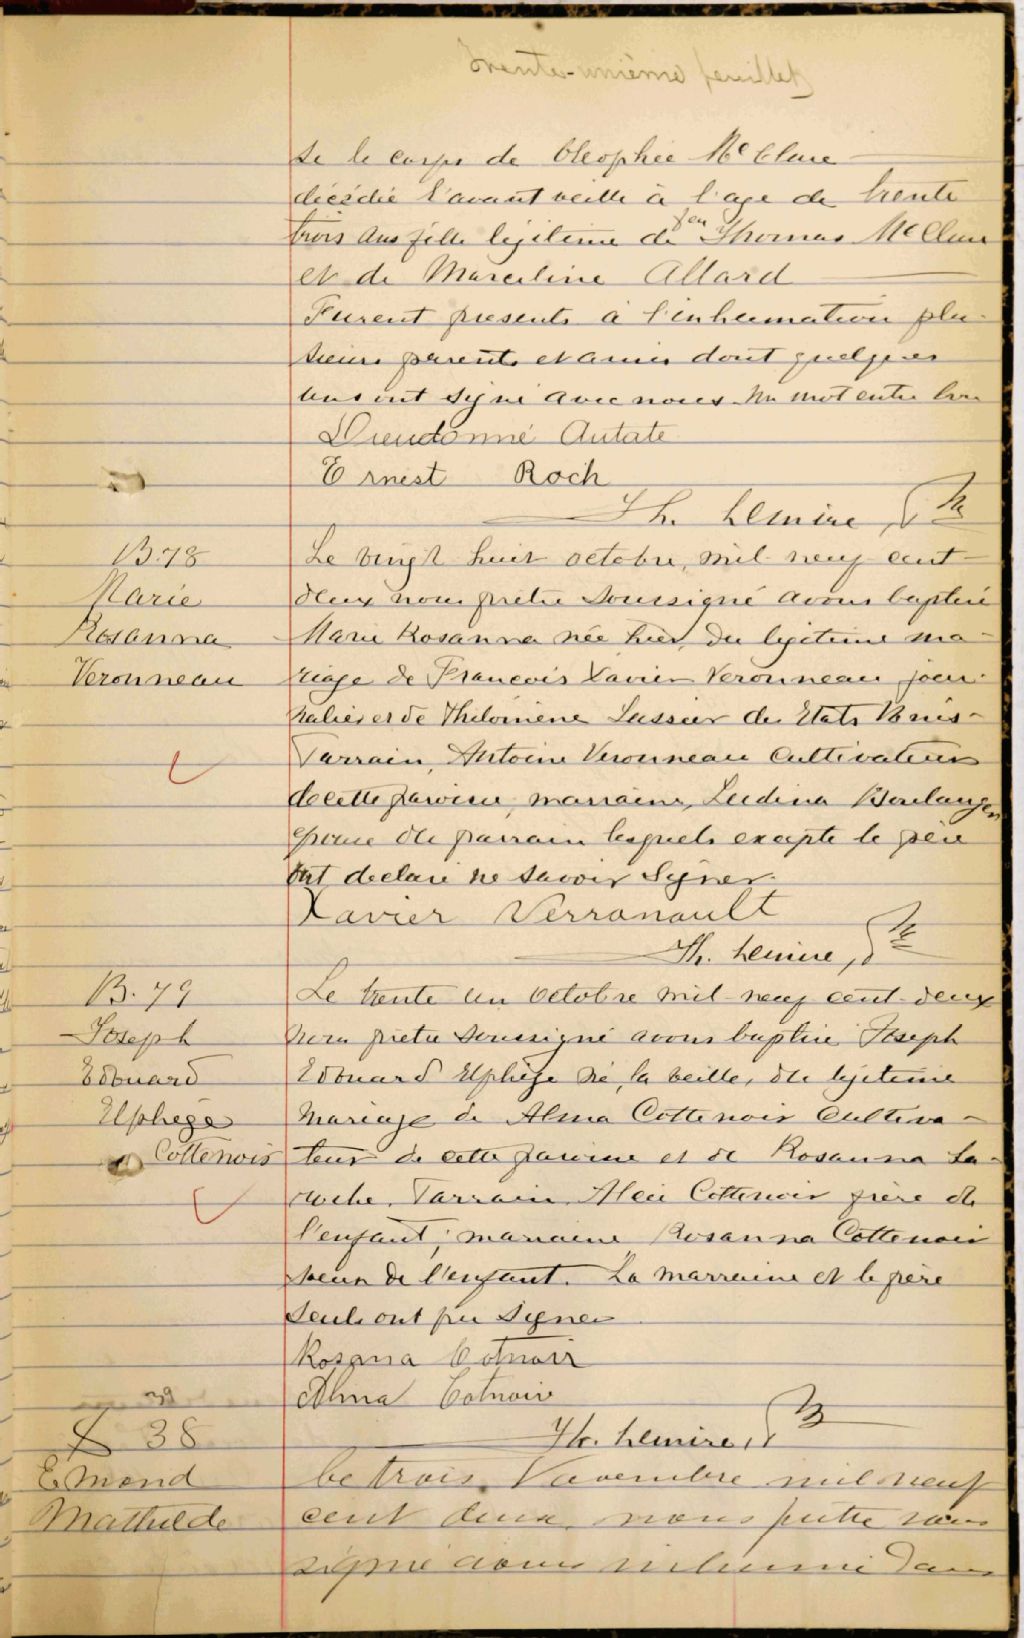 Trente-unième feuillet
se le corps de Cléophée McClure
décédée l'avant veille à l'age de trente
trois ans fille legitime de feu Thomas McClure
et de Marceline Allard
Furent presents a l'inhumation plu-
sieurs parents et amis dont quelques
uns ont signé avec nous. Un mot entre lign
Dieudonné Autate
Ernest Roch
Th. Lemire, Ptre
B. 78
Marie
Rosanna
Veronneau
Le vingt huit octobre, mil neuf cent
deux nous prêtre soussigné avons baptisé
Marie Rosanna née hier, du legitime ma-
riage de Francois Xavier Veronneau jour-
nalier et de Philomène Lussier des Etats Unis-
Parrain, Antoine Veronneau Cultivateur
de cette paroisse, marraine, Ludina Boulanger
épouse du parrain lesquels excepte le père
ont declaré ne savoir signer.
Xavier Verronault
Th. Lemire, Ptre
B. 79
Joseph
Edouard
Elphege
Cottenois
Le trente un octobre mil neuf cent deux
nous prêtre soussigné avons baptisé Joseph
Edouard Elphège né, la veille, du legitime
mariage de Alma Cottenoir Cultiva-
teur de cette paroisse et de Rosanna La-
roche. Parrain, Cottenoir frère de
l'enfant; marraine Rosanna Cottenoir
soeur de l'enfant. La marraine et le père
seuls ont pu signer
Rosana Cotnoir
Alma Cotnoir
Th. Lemire, Ptre
S 38
Emond
Mathilde
Le trois Novembre mil neuf
cent deux, nous prêtre sous
signé avons inhumé dans